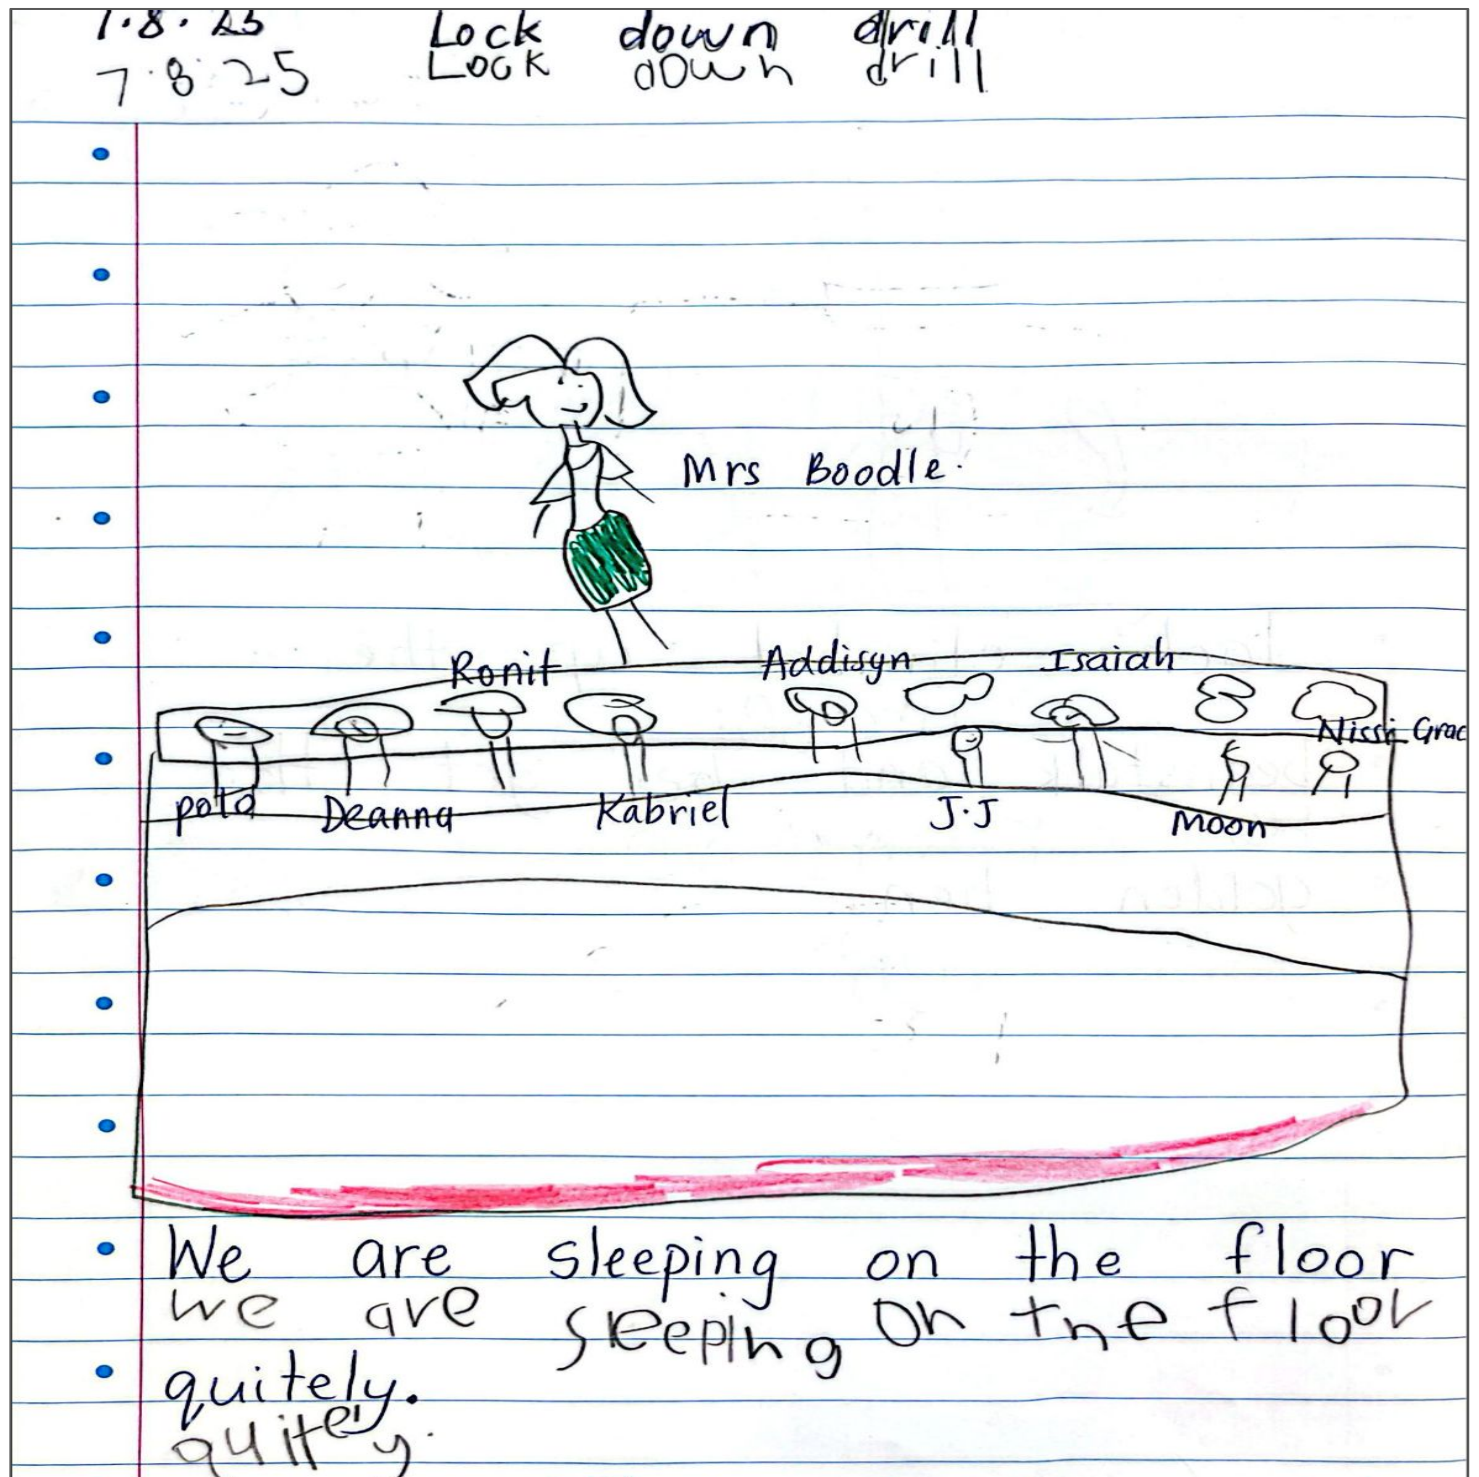 7.8.25 Lock down drill
7.8.25 Lock down drill
Mrs Boodle.
Ronit Addisyn Isaiah
Nissi Grac
pota Deanna Kabriel J.J Moon
We are sleeping on the floor
we are sleeping on the floor
quitely.
quitely.